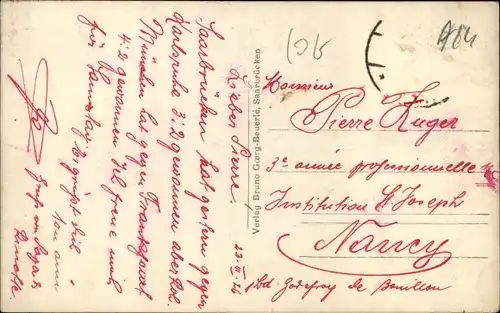 23. VI. 26
Lieber Pierre.
Saarbrücken hat gestern gegen
Karlsruhe 3:2 gewonnen aber
München hat gegen Frankfurt
4:2 gewonnen. Ich freue mich
für Samstag. Es grüßt Dich
Gruß von Papa &
Verlag Bruno Gœrg-Beuerlé, Saarbrücken
Monsieur
Pierre Kuger
3e année professionnelle
Institution St Joseph
Nancy
Bd. Godefroy de Bouillon